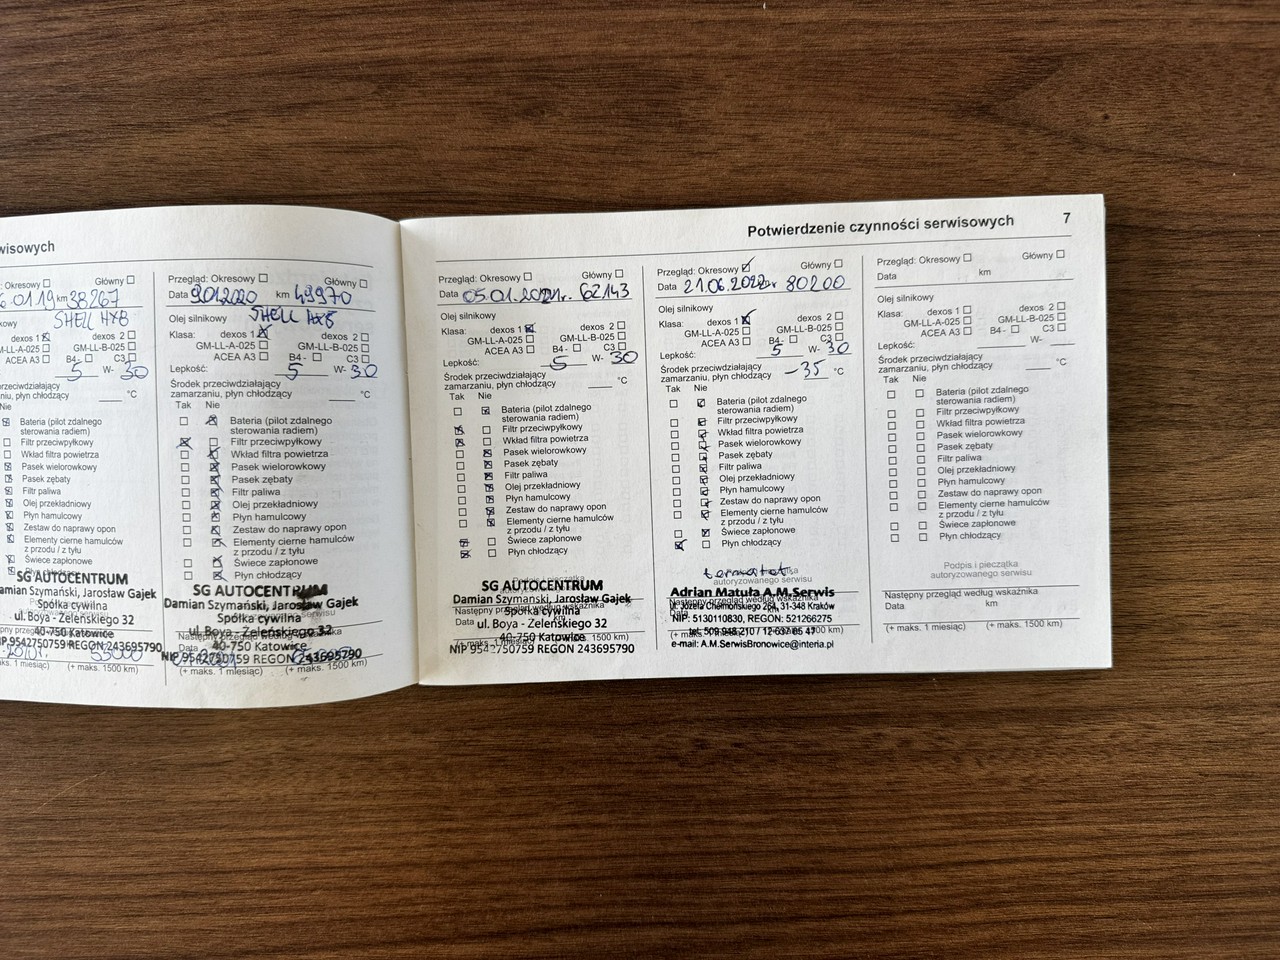 wisowych
Okresowy Główny
01 19 km 38267
SHELL HX8
dexos 1 dexos 2
GM-LL-A-025 GM-LL-B-025
ACEA A3 B4- C3
5 W- 30
°C
Nie
Bateria (pilot zdalnego
sterowania radiem)
Filtr przeciwpyłkowy
Wkład filtra powietrza
Pasek wielorowkowy
Pasek zębaty
Filtr paliwa
Olej przekładniowy
Płyn hamulcowy
Zestaw do naprawy opon
Elementy cierne hamulców
z przodu / z tyłu
Świece zapłonowe
SG AUTOCENTRUM
Damian Szymański, Jarosław Gajek
Spółka cywilna
ul. Boya - Żeleńskiego 32
40-750 Katowice
NIP 9542750759 REGON 243695790
(+ maks. 1500 km)
Przegląd: Okresowy Główny
Data km 49970
Olej silnikowy SHELL HX8
Klasa: dexos 1 dexos 2
GM-LL-A-025 GM-LL-B-025
ACEA A3 B4- C3
Lepkość: 5 W- 30
Środek przeciwdziałający
zamarzaniu, płyn chłodzący °C
Tak Nie
Bateria (pilot zdalnego
sterowania radiem)
Filtr przeciwpyłkowy
Wkład filtra powietrza
Pasek wielorowkowy
Pasek zębaty
Filtr paliwa
Olej przekładniowy
Płyn hamulcowy
Zestaw do naprawy opon
Elementy cierne hamulców
z przodu / z tyłu
Świece zapłonowe
Płyn chłodzący
SG AUTOCENTRUM
Damian Szymański, Jarosław Gajek
Spółka cywilna
ul. Boya - Żeleńskiego 32
40-750 Katowice
NIP 9542750759 REGON 243695790
(+ maks. 1 miesiąc) (+ maks. 1500 km)
Potwierdzenie czynności serwisowych 7
Przegląd: Okresowy Główny
Data 05.01.2021r. 62143
Olej silnikowy
Klasa: dexos 1 dexos 2
GM-LL-A-025 GM-LL-B-025
ACEA A3 B4- C3
Lepkość: 5 W- 30
Środek przeciwdziałający
zamarzaniu, płyn chłodzący °C
Tak Nie
Bateria (pilot zdalnego
sterowania radiem)
Filtr przeciwpyłkowy
Wkład filtra powietrza
Pasek wielorowkowy
Pasek zębaty
Filtr paliwa
Olej przekładniowy
Płyn hamulcowy
Zestaw do naprawy opon
Elementy cierne hamulców
z przodu / z tyłu
Świece zapłonowe
Płyn chłodzący
SG AUTOCENTRUM
Damian Szymański, Jarosław Gajek
Następny przegląd według wskaźnika
Spółka cywilna
ul. Boya - Żeleńskiego 32
40-750 Katowice
NIP 9542750759 REGON 243695790
Przegląd: Okresowy Główny
Data 21.06.2022r 80200
Olej silnikowy
Klasa: dexos 1 dexos 2
GM-LL-A-025 GM-LL-B-025
ACEA A3 B4- C3
Lepkość: 5 W- 30
Środek przeciwdziałający
zamarzaniu, płyn chłodzący -35 °C
Tak Nie
Bateria (pilot zdalnego
sterowania radiem)
Filtr przeciwpyłkowy
Wkład filtra powietrza
Pasek wielorowkowy
Pasek zębaty
Filtr paliwa
Olej przekładniowy
Płyn hamulcowy
Zestaw do naprawy opon
Elementy cierne hamulców
z przodu / z tyłu
Świece zapłonowe
Płyn chłodzący
termostat
autoryzowanego serwisu
Adrian Matuła A.M.Serwis
Następny przegląd według wskaźnika
ul. Józefa Chełmońskiego 264, 31-348 Kraków
NIP: 5130110830, REGON: 521266275
e-mail: A.M.SerwisBronowice@interia.pl
Przegląd: Okresowy Główny
Data km
Olej silnikowy
Klasa: dexos 1 dexos 2
GM-LL-A-025 GM-LL-B-025
ACEA A3 B4- C3
Lepkość: W-
Środek przeciwdziałający
zamarzaniu, płyn chłodzący °C
Tak Nie
Bateria (pilot zdalnego
sterowania radiem)
Filtr przeciwpyłkowy
Wkład filtra powietrza
Pasek wielorowkowy
Pasek zębaty
Filtr paliwa
Olej przekładniowy
Płyn hamulcowy
Zestaw do naprawy opon
Elementy cierne hamulców
z przodu / z tyłu
Świece zapłonowe
Płyn chłodzący
Podpis i pieczątka
autoryzowanego serwisu
Następny przegląd według wskaźnika
Data km
(+ maks. 1 miesiąc) (+ maks. 1500 km)